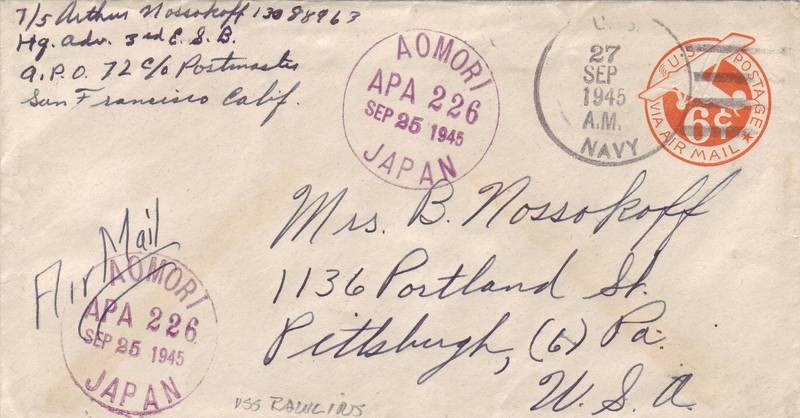 T/5 Arthur Nossokoff 13088963
Hq. Adv. 3rd E. S. B.
A.P.O. 72 c/o Postmaster
San Francisco Calif.
AOMORI
APA 226
SEP 25 1945
JAPAN
U.S.
27
SEP
1945
A.M.
NAVY
U.S. POSTAGE
6¢
VIA AIR MAIL
Mrs. B. Nossokoff
1136 Portland St.
Pittsburgh, (6) Pa.
U. S. A.
Air Mail
AOMORI
APA 226
SEP 25 1945
JAPAN
USS RAWLINS